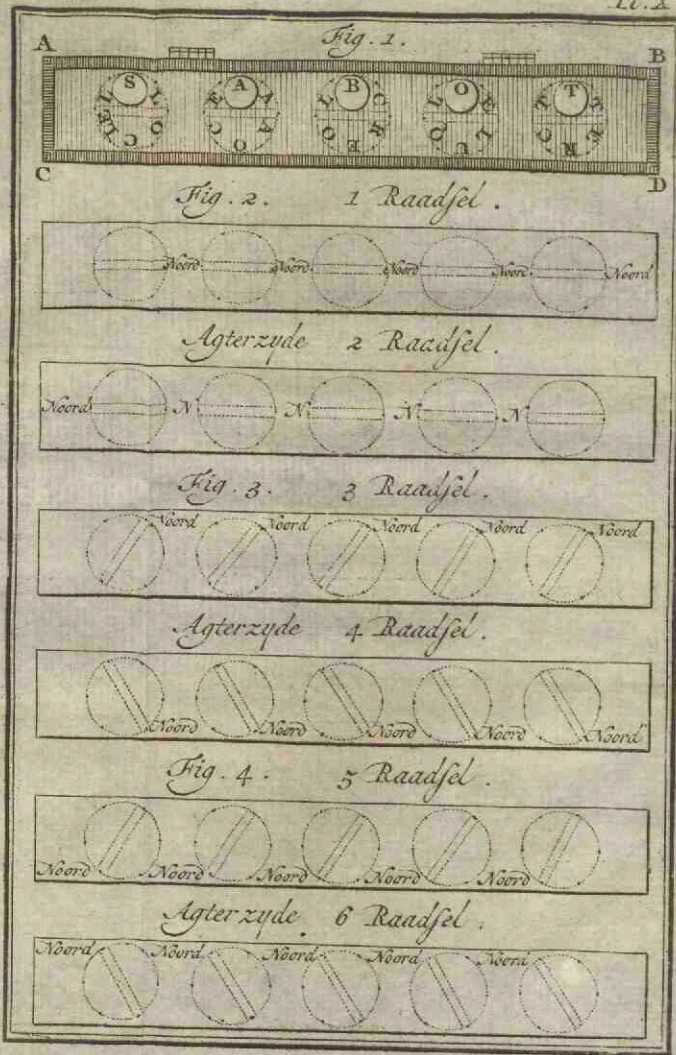 Fig. 1.
A B
S L O C I E L
A A A O C E
B C R E O L
O E L U O L
T T E R C T
C D
Fig. 2. 1 Raadsel.
Noord Noord Noord Noord Noord
Agterzyde 2 Raadsel.
Noord N N N N
Fig. 3. 3 Raadsel.
Noord Noord Noord Noord Noord
Agterzyde 4 Raadsel.
Noord Noord Noord Noord Noord
Fig. 4. 5 Raadsel.
Noord Noord Noord Noord Noord
Agterzyde 6 Raadsel.
Noord Noord Noord Noord Noord